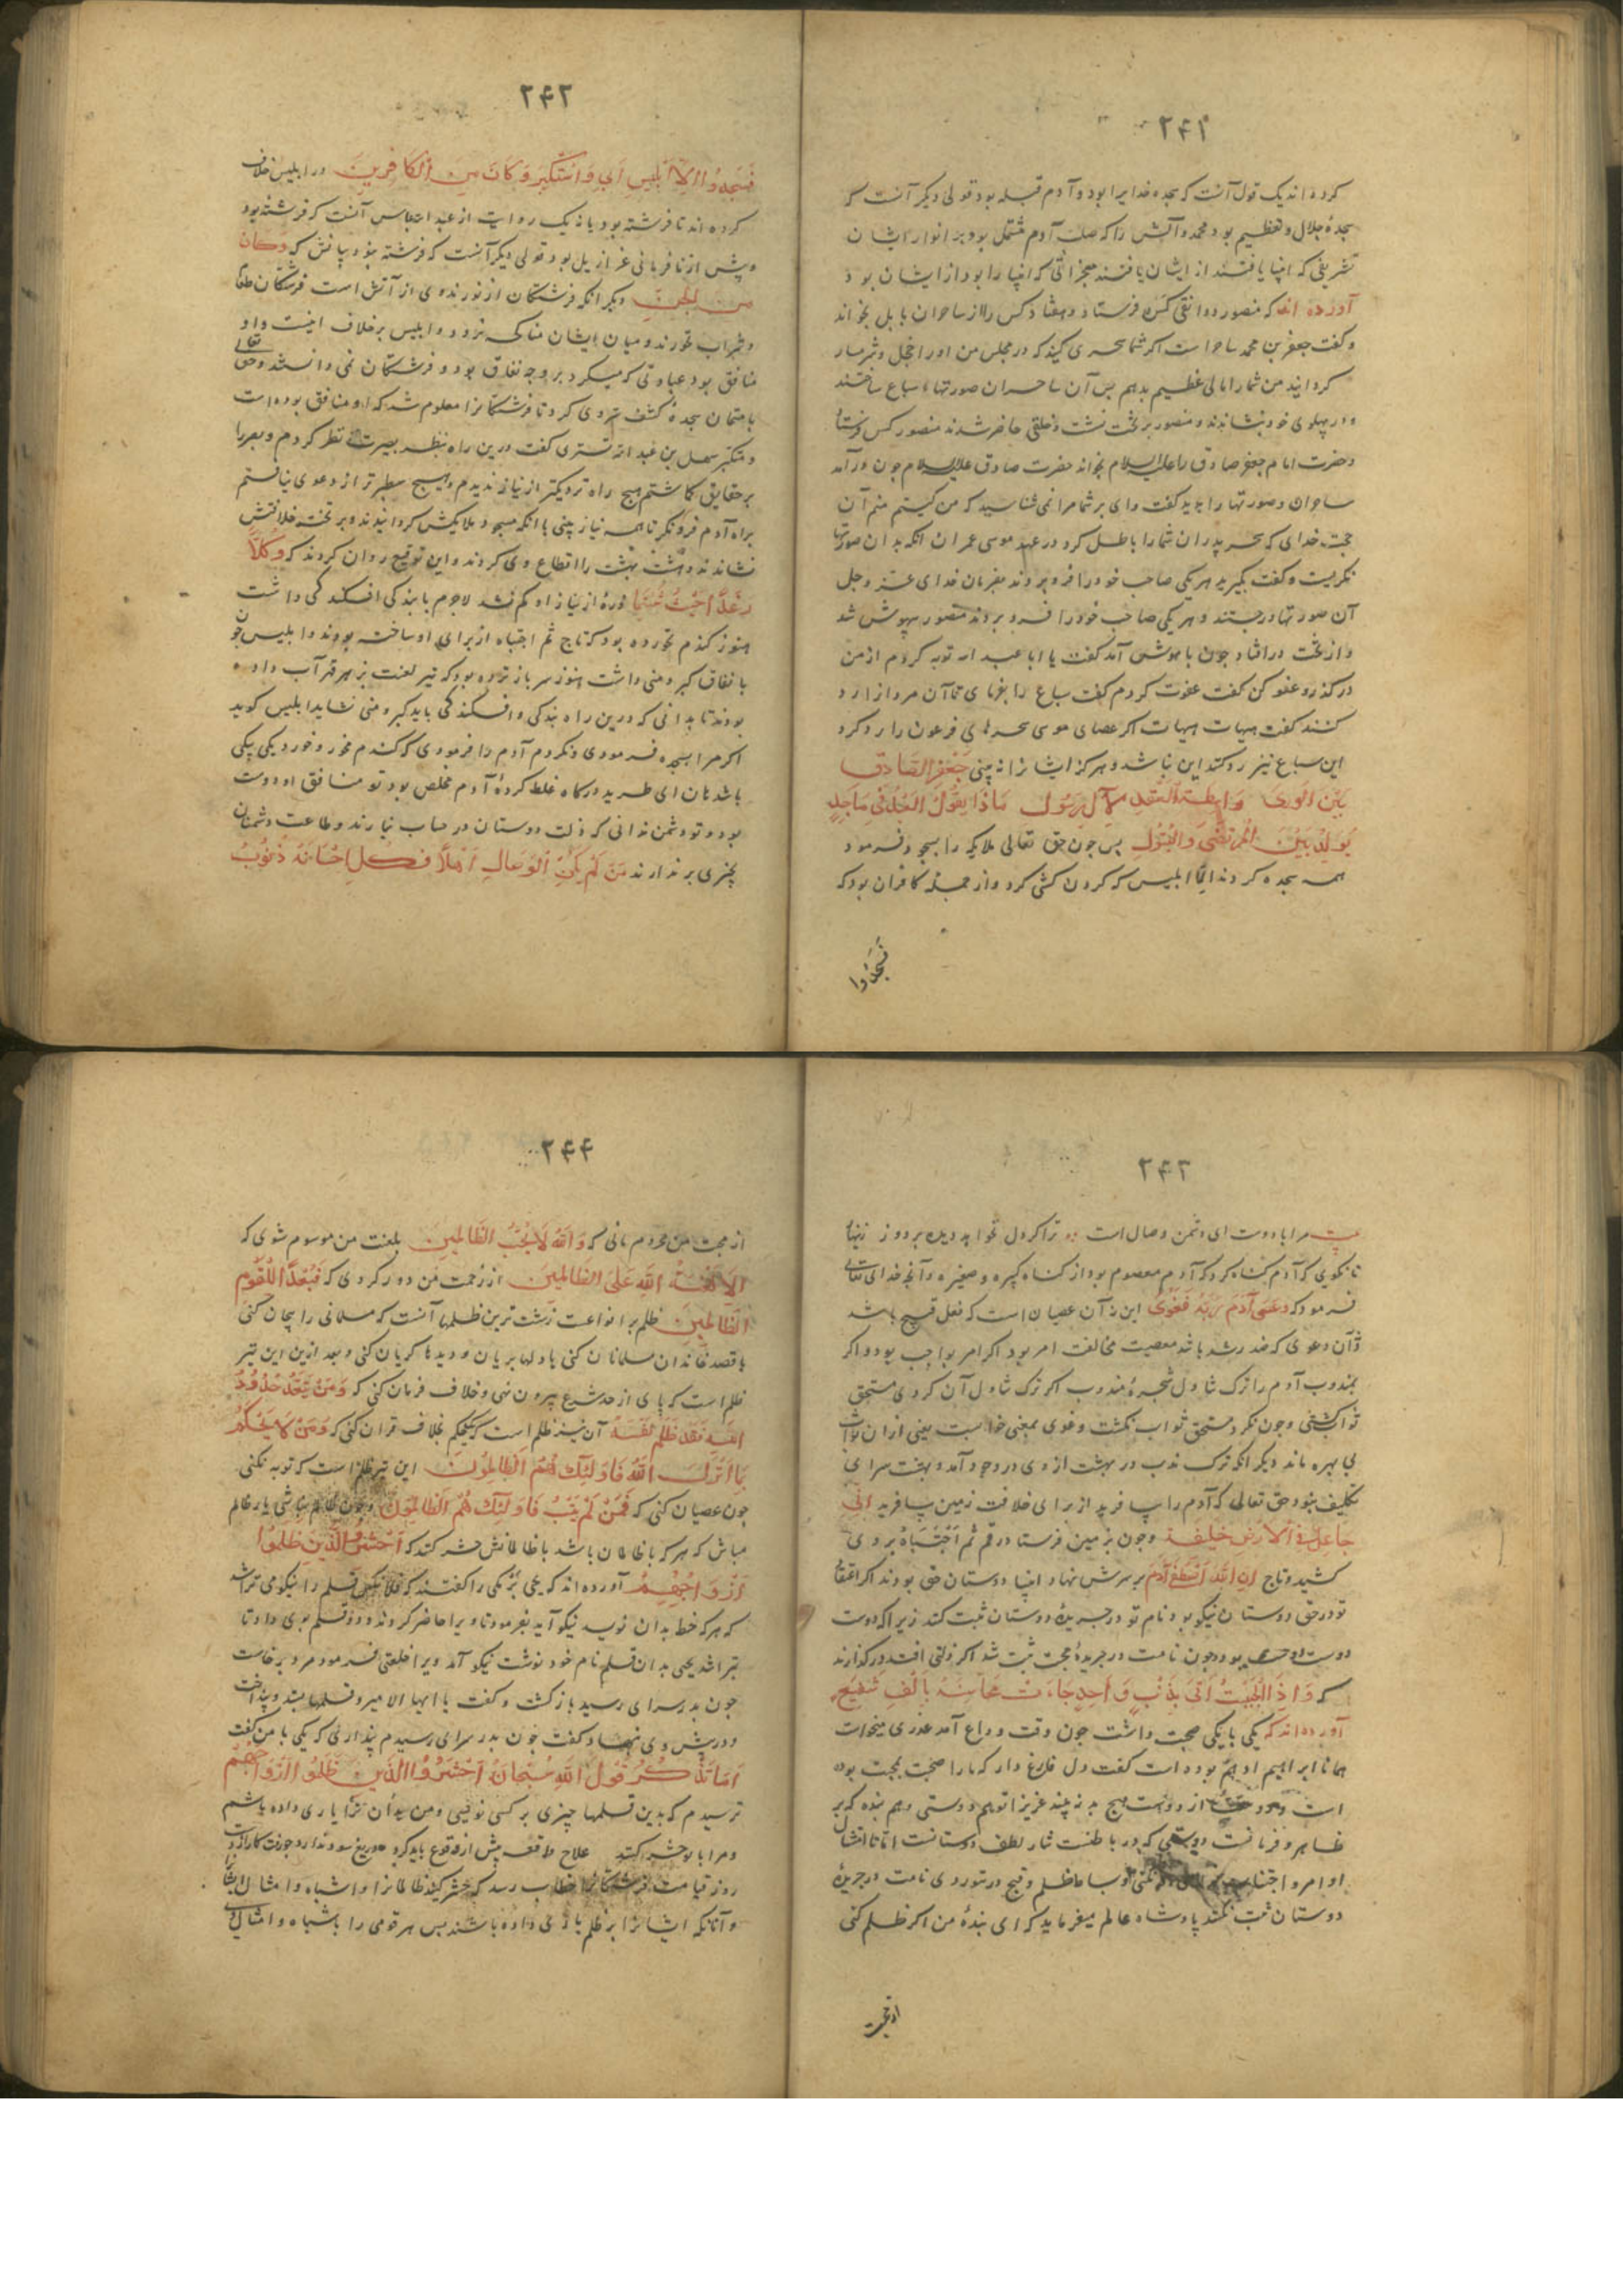 ۲۴۱
کرده اند یک قول آنست که سجده خدایرا بود و آدم قبله بود قولی دیکر آنست که
سجدهٔ جلال و تعظیم بود محمد و آلش را که صلب آدم مشتمل بود بر انوار ایشان
تشریفی که انبیا یافتند از ایشان یافتند معجزاتی که انبیا را بود از ایشان بود
آورده اند که منصور دوانقی کس فرستاد و هفتاد کس را از ساحران بابل بخواند
و کفت جعفر بن محمد ساحر است اکر شما سحری کنید که در مجلس من او را خجل و شرمسار
کردانید من شما را مالی عظیم بدهم پس آن ساحران صورتهاء سباع ساختند
و در پهلوی خود بنشاندند و منصور بر تخت نشست و خلقی حاضر شدند منصور کس فرستاد
و حضرت امام جعفر صادق را علیه السلام بخواند حضرت صادق علیه السلام چون درآمد
ساحران و صورتها را بدید کفت وای بر شما مرا نمی شناسید که من کیستم منم آن
حجت خدای که سحر پدران شما را باطل کرد در عهد موسی عمران انکه بدان صورتها
نکریست و کفت بکیرید هر یکی صاحب خود را فرو بردند بفرمان خدای عز و جل
آن صورتها درجستند و هر یکی صاحب خود را فرو بردند منصور بیهوش شد
و از تخت درافتاد چون با هوش آمد کفت یا ابا عبد الله توبه کردم از من
درکذر و عفو کن کفت عفوت کردم کفت سباع را بفرمای تا آن مردانرا رد
کنند کفت هیهات هیهات اکر عصای موسی سحرهای فرعون را رد کرد
این سباع نیز رد کند این نباشد و هرکز ایشانرا نه بینی جَعْفَرِ الصّادِق
بَیْنَ الْوَری وَ اسِطَةُ الْعِقْدِ لِآلِ رَسُول مَاذَا یَقُولُ الْخَلْقُ فی مَاجِدٍ
یُولَدُ بَیْنَ الْمُرْتَضی وَ الْبَتُول پس چون حق تعالی ملایکه را بسجود فرمود
همه سجده کردند الّا ابلیس که کردن کشی کرد و از جملهٔ کافران بود که
فَسَجَدُوا
۲۴۲
فَسَجَدُوا اِلّا اِبْلِیسَ اَبی وَ اسْتَکْبَرَ وَ کَانَ مِنَ الْکَافِرِینَ در ابلیس خلاف
کرده اند تا فرشته بود یا نه یک روایت از عبد الله عباس آنست که فرشته بود
و پیش از نافرمانی عزازیل بود قولی دیکر آنست که فرشته نبود بیانش که وَکَانَ
مِنَ الْجِنِّ دیکر آنکه فرشتکان از نورند و وی از آتش است فرشتکان طعام
و شراب نخورند و میان ایشان مناکحه نرود و ابلیس برخلاف اینست و او
منافق بود عبادتی که میکرد بر وجه نفاق بود و فرشتکان نمی دانستند و حق تعالی
بامتحان سجدهٔ کشف سر وی کرد تا فرشتکانرا معلوم شد که او منافق بوده است
و متکبر سهل بن عبد الله تستری کفت درین راه بنظر بصیرت نظر کردم و بصر را
بر حقایق کماشتم هیچ راه نزدیکتر از نیاز ندیدم و هیچ سطبرتر از دعوی نیافتم
براه آدم فرو نکر تا همه نیاز بینی با آنکه مسجود ملایکش کردانیدند و بر تخت خلافتش
نشاندند و هشت بهشت را اقطاع وی کردند و این توقیع روان کردند که وَکُلَا
رَغَداً حَیْثُ شِئْتُمَا ذرهٔ از نیاز او کم نشد لاجرم با بندکی افکندکی داشت
هنوز کندم نخورده بود که تاج ثم اجتباه از برای او ساخته بودند و ابلیس چون
با نفاق کبر و منی داشت هنوز سر باز نزده بود که تیر لعنت بزهر قهر آب داده
بودند تا بدانی که درین راه بندکی و افکندکی باید کبر و منی نشاید ابلیس کوید
اکر مرا بسجده فرمودی و نکردم آدم را فرمودی که کندم مخور و خورد یکی بیکی
باشد هان ای طرید درکاه غلط کردهٔ آدم مخلص بود تو منافق او دوست
بود و تو دشمن ندانی که زلت دوستان در حساب نیارند و طاعت دشمنان
بچیزی برندارند مَنْ لَمْ یَکُنْ لِلْوِصَالِ اَهْلًا فَکُلُّ اِحْسَانِهِ ذُنُوبُ
۲۴۳
بیت مرا با دوست ای دشمن وصال است ترا کر دل نخواهد دیده بردوز زینهار
تا نکویی که آدم کناه کرد که آدم معصوم بود از کناه کبیره و صغیره و آنچه خدای تعالی
فرمود که وَعَصی آدَمُ رَبَّهُ فَغَوی این نه آن عصیان است که فعل قبیح باشد
و آن دعوی که ضد رشد باشد معصیت مخالفت امر بود اکر امر بواجب بود و اکر
بمندوب آدم را ترک تناول شجرهٔ مندوب اکر ترک تناول آن کردی مستحق
ثواب کشتی و چون نکرد مستحق ثواب نکشت و غوی بمعنی خوابست یعنی از آن ثواب
بی بهره ماند دیکر آنکه ترک ندب در بهشت از وی در وجود آمد و بهشت سرای
تکلیف نبود حق تعالی که آدم را بیافرید از برای خلافت زمین بیافرید اِنّی
جَاعِلٌ فِی الْاَرْضِ خَلِیفَة و چون بزمین فرستاد رقم ثُمَّ اجْتَبَاهُ بر وی
کشید و تاج اِنَّ اللهَ اصْطَفی آدَمَ بر سرش نهاد و انبیا دوستان حق بودند اکر اعتقاد
تو در حق دوستان نیکو بود نام تو در جریدهٔ دوستان ثبت کند زیرا که دوست
دوست دوست بود و چون نامت در جریدهٔ محبت ثبت شد اکر زلتی افتد درکذارند
که وَ اِذَا الْحَبِیبُ اَتی بِذَنْبٍ وَاحِدٍ جَاءَتْ مَحَاسِنُهُ بِاَلْفِ شَفِیعٍ
آورده اند که یکی با یکی صحبت داشت چون وقت وداع آمد عذری میخواست
همانا ابراهیم ادهم بوده است کفت دل فارغ دار که ما را صحبت بمحبت بوده
است و دوست از دوست هیچ بد نه بیند عزیزا توهم دوستی و هم بنده که بر
ظاهر و فرمانست دوستی که در باطنست نثار لطف دوستانست اما تا امتثال
اوامر و اجتناب نواهی نکنی و بساط ظلم و قبح در ننوردی نامت در جریدهٔ
دوستان ثبت نکنند پادشاه عالم میفرماید که ای بندهٔ من اکر ظلم کنی
از محبت
۲۴۴
از محبت من محروم مانی که وَ اللهُ لَا یُحِبُّ الظَّالِمِینَ بلعنت من موسوم شوی که
اَلَا لَعْنَةُ اللهِ عَلَی الظَّالِمِینَ از رحمت من دور کردی که فَبُعْداً لِلْقَوْمِ
الظَّالِمِینَ ظلم بر انواعست زشت ترین ظلمها آنست که مسلمانی را بیجان کنی
یا قصد خاندان مسلمانان کنی یا دلها بریان و دیدها کریان کنی و بعد ازین این نیز
ظلم است که پای از حد شرع بیرون نهی و خلاف فرمان کنی که وَمَنْ یَتَعَدَّ حُدُودَ
اللهِ فَقَدْ ظَلَمَ نَفْسَهُ آن نیز ظلم است که حکم بخلاف قران کنی که وَمَنْ لَا یَحْکُمْ
بِمَا اَنْزَلَ اللهُ فَاُولئِکَ هُمُ الظَّالِمُونَ این نیز ظلم است که توبه نکنی
چون عصیان کنی که فَمَنْ لَمْ یَتُبْ فَاُولئِکَ هُمُ الظَّالِمُونَ و چون ظالم نباشی یار ظالم
مباش که هر که با ظالمان باشد با ظالمانش حشر کنند که اُحْشُرُوا الَّذِینَ ظَلَمُوا
وَ اَزْوَاجَهُمْ آورده اند که یحیی بزمکی را کفتند که فلان کس قلم را نیکو می تراشد
که هر که خط بدان نویسد نیکو آید بفرمود تا ویرا حاضر کردند و دو قلم بوی داد تا
بتراشد یحیی بدان قلم نام خود نوشت نیکو آمد ویرا خلعتی فرمود مرد برخاست
چون بدر سرای رسید بازکشت و کفت یا ایها الامیر و قلمها بستد و بینداخت
و در پیش وی نهاد و کفت چون بدر سرای رسیدم پنداری که یکی با من کفت
اَمَا تَذْکُرُ قَوْلَ اللهِ سُبْحَانَهُ اُحْشُرُوا الَّذِینَ ظَلَمُوا وَ اَزْوَاجَهُمْ
ترسیدم که بدین قلمها چیزی بر کسی نویسی و من بدان ترا یاری داده باشم
و مرا با تو حشر کنند علاج واقعه پیش از وقوع باید کرد دریغ سود ندارد چو رفت کار از دست
روز قیامت فرشتکانرا خطاب رسد که حشر کنید ظالمانرا و اشباه و امثال ایشانرا
و آنانکه ایشانرا بر ظلم یاری داده باشند پس هر قومی را با شباه و امثال